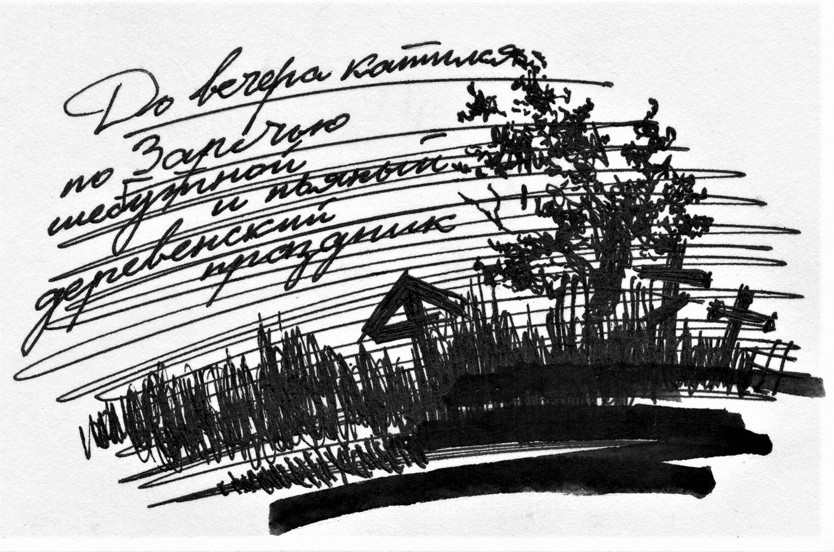 До вечера катился
по Заречью
шебутной
и пьяный
деревенский
праздник